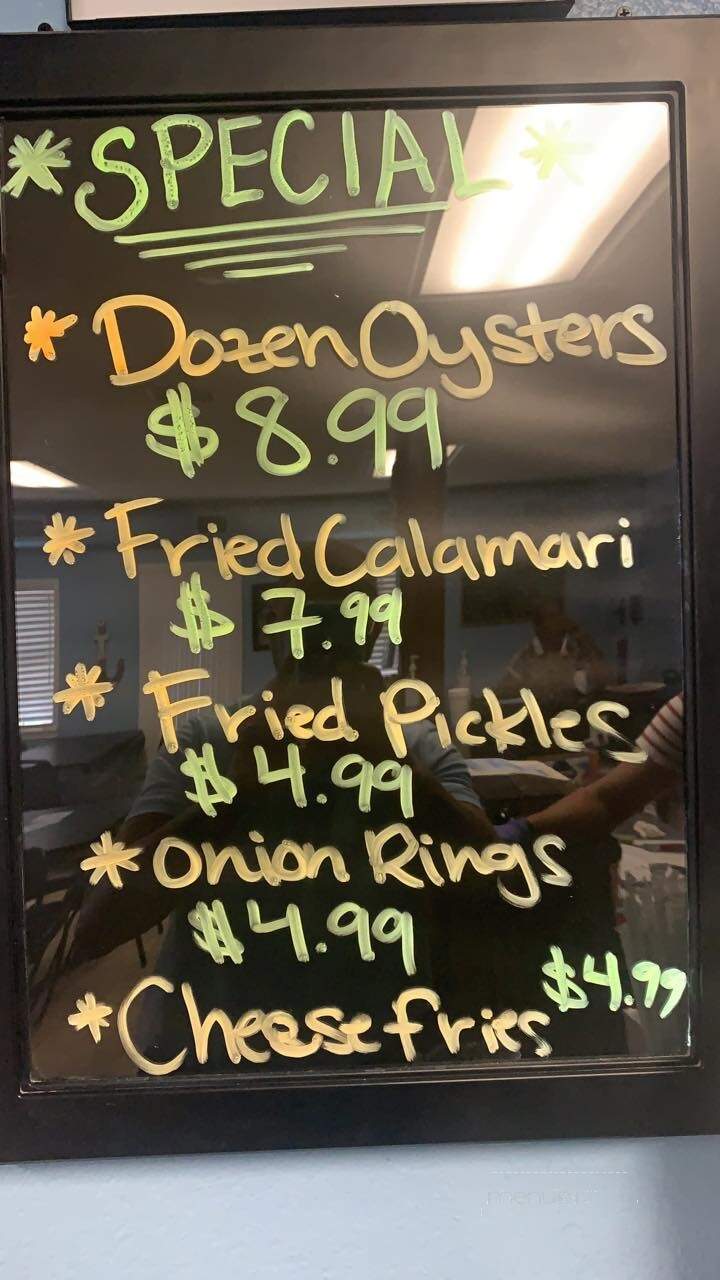 *SPECIAL*
* Dozen Oysters
$8.99
* Fried Calamari
$7.99
* Fried Pickles
$4.99
* Onion Rings
$4.99
* Cheese fries $4.99